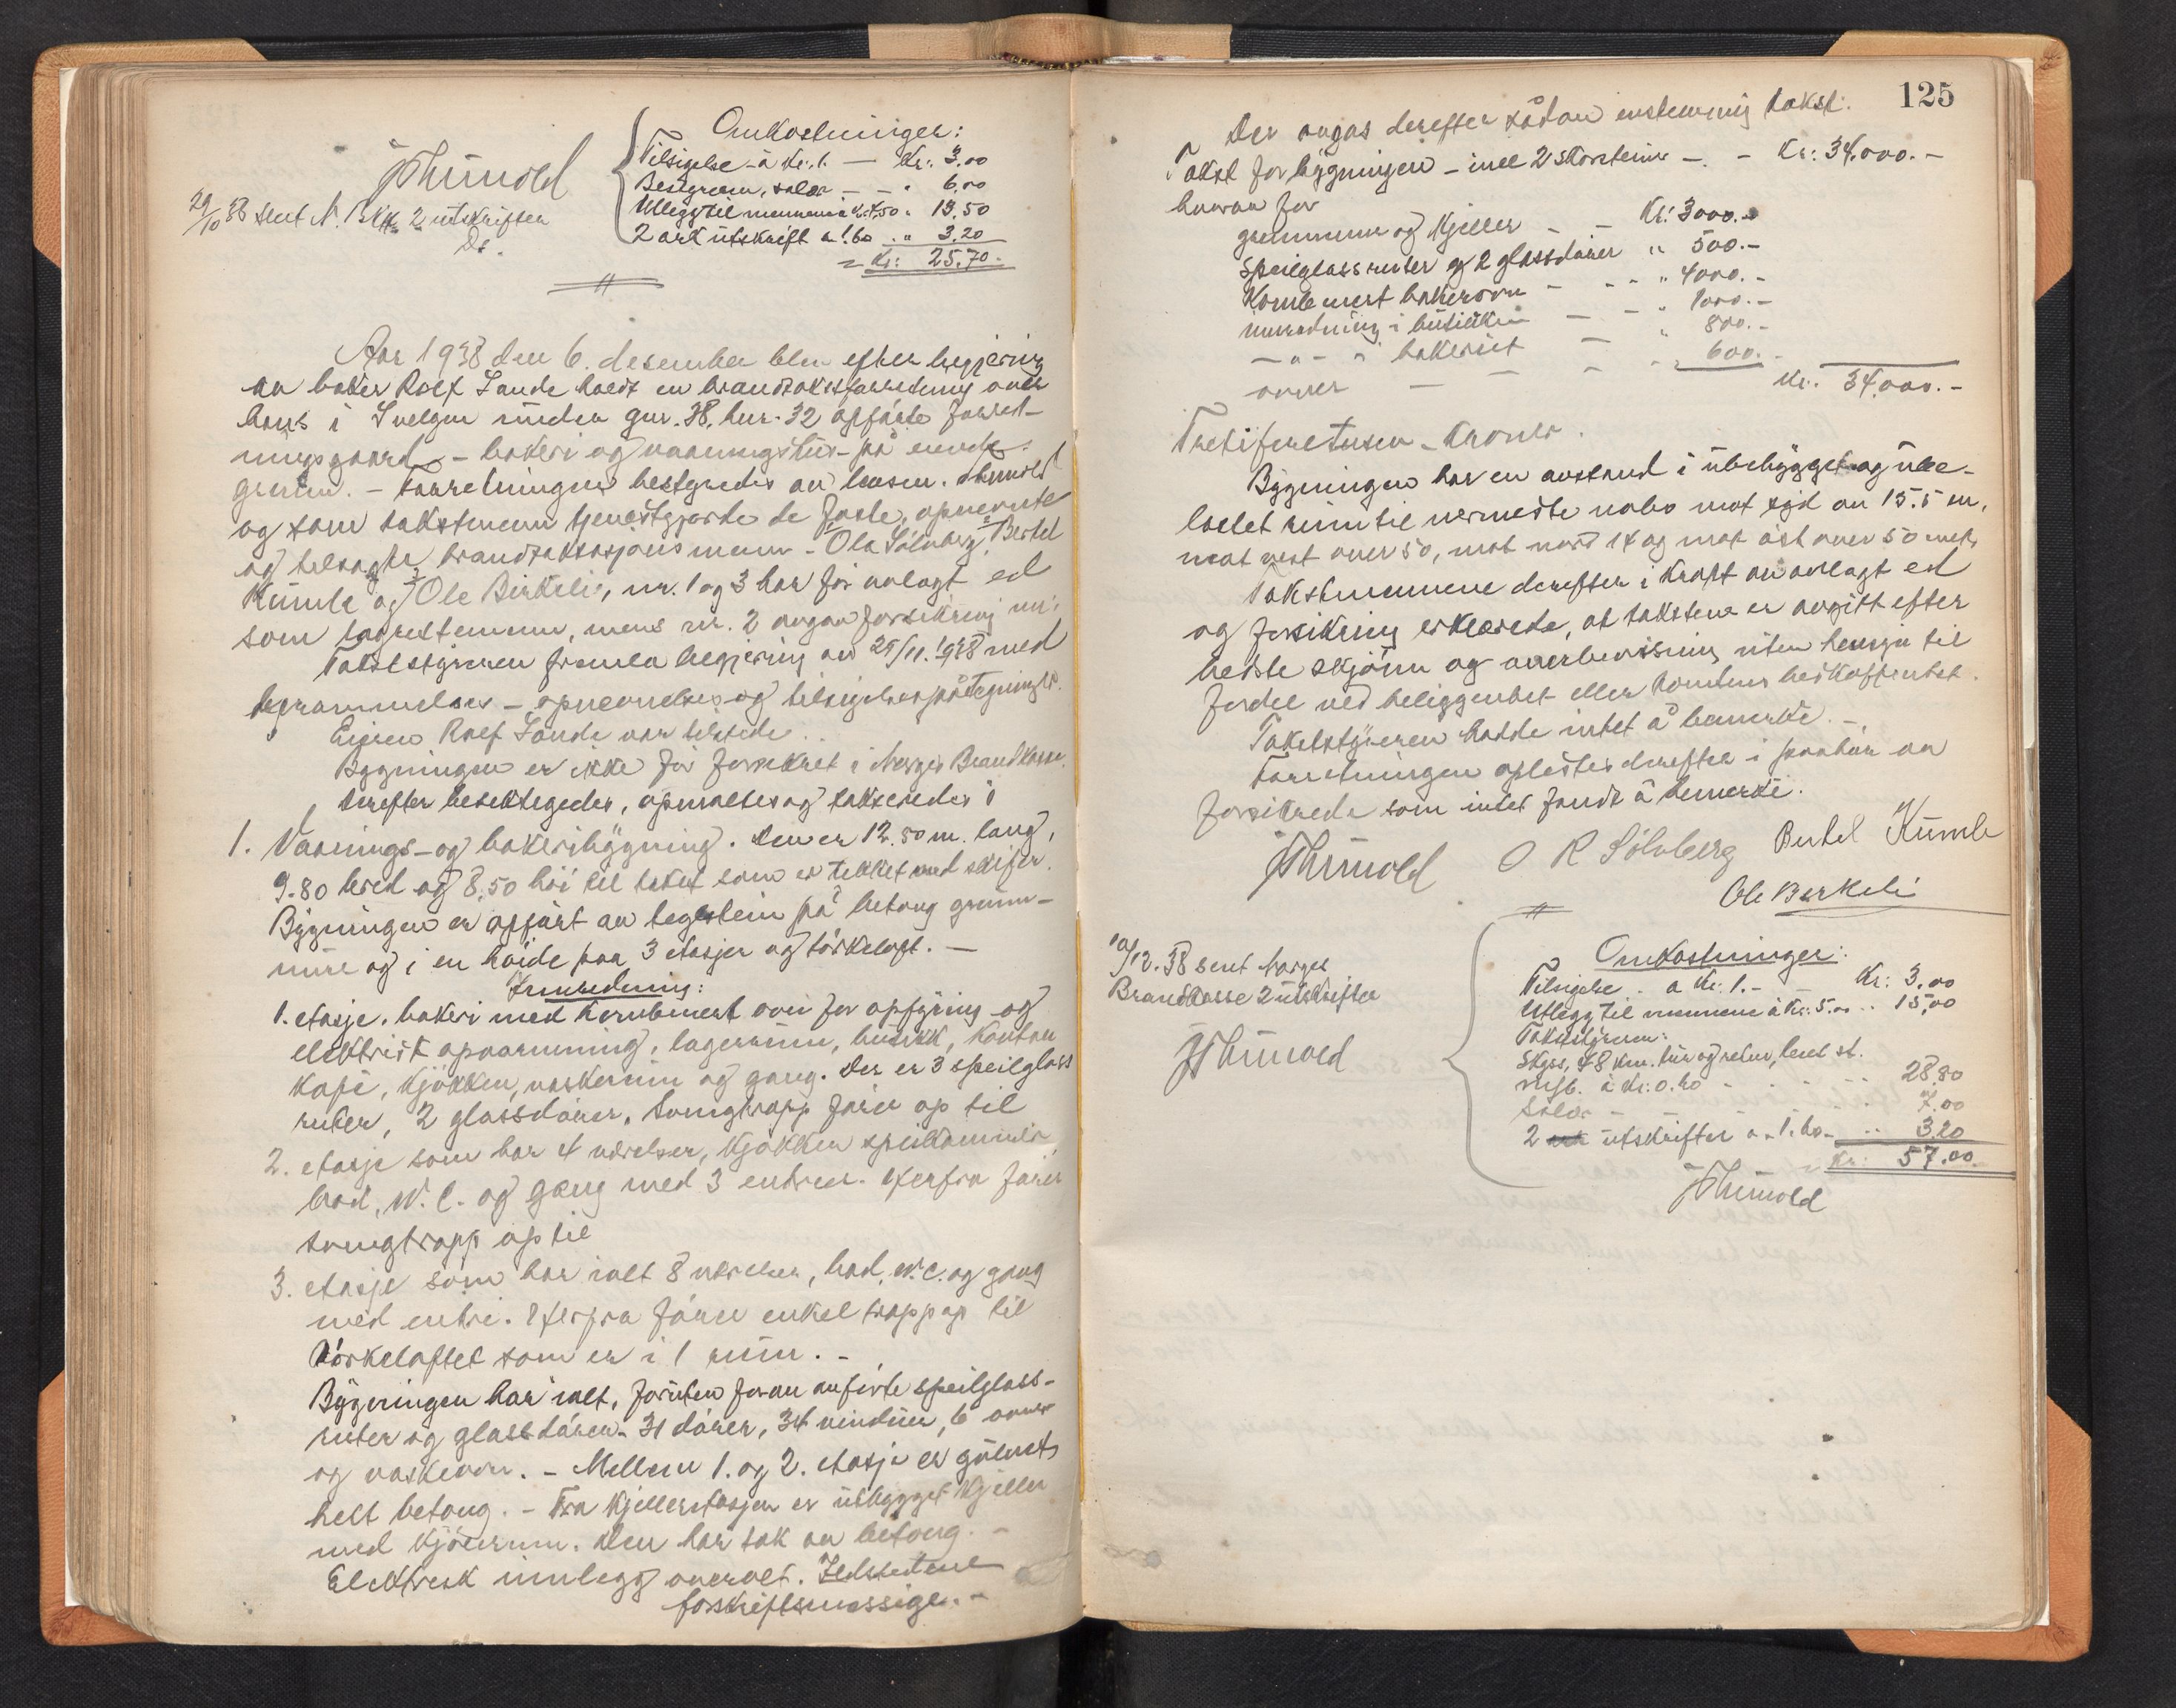 Omkostninger:
Tilsigelse à Kr. 1. — Kr: 3,00
Bestyreren, salær — — " 6,00
Utlegg til mennene à Kr. 4.50 " 13.50
2 ark utskrift a 1.60 .. " 3,20
= Kr: 25,70.
JThunold
29/10 38 sent N. Bkk. 2 utskrifter
Ds.
Aar 1938 den 6. desember blev efter begjering
av baker Rolf Sande holdt en brandtakstforretning over
hans i Svelgen under gnr. 38, bnr. 32 opførte forret-
ningsgaard – bakeri og vaaningshus – på
grunn. – Forretningen bestyredes av lensm. Thunold
og som takstmenn tjenestgjorde de faste, opnevnte
og tilsagte brandtakstasjonsmenn – Ola Sølvberg, 2 Bertel
Kumle og 3 Ole Birkeli, nr. 1 og 3 har før avlagt ed
som lagrettemenn, mens nr. 2 avgav forsikring nu.
Takststyreren fremla begjering av 25/11. 1938 med
berammelses – opnevnelses og tilsigelsespåtegninger.
Eieren Rolf Sande var tilstede.
Bygningen er ikke før forsikret i Norges Brandkasse.
Derefter besiktigedes, opmaaltes og taksertes:
1. Vaanings- og bakeribygning. Den er 12.50 m. lang,
9.80 bred og 8,50 høi til taket som er tekket med skifer.
Bygningen er opført av teglstein på betong grunn-
mure og i en høide paa 3 etasjer og tørkeloft. —
Innredning:
1. etasje. bakeri med kombinert ovn for opfyring og
elektrisk opvarmning, lagerrum, butikk, kontor
kafé, kjøkken, vaskerum og gang. Der er 3 speilglass
ruter, 2 glassdører. Svingtrapp fører op til
2. etasje som har 4 værelser, kjøkken spiskammer
bad, W. C. og gang med 3 entreer. Herfra fører
svingtrapp op til
3. etasje som har ialt 8 værelser, bad, W.C. og gang
med entre. Herfra fører enkel trapp op til
tørkeloftet som er i 1 rum. –
Bygningen har ialt, foruten foran anførte speilglass-
ruter og glassdører – 31 dører, 34 vinduer, 6 ovner
og vaskeovn. – Mellem 1. og 2. etasje er gulvet
helt betong. – Fra kjelleretasjen er utbygget kjeller
med kjølerum. Den har tak av betong. –
Elektrisk innlegg overalt. Ildstedene
forskriftsmessige. –
125
Der avgas derefter sådan enstemmig takst:
Takst for bygningen – inkl 2 skorsteine –. – Kr: 34.000. –
hvorav for
grunnmur og kjeller – – Kr: 3000. –
Speilglassruter og 2 glassdører " 500. –
Kombinert bakerovn – – – " 4000. –
innredning i butikken – – " 1000. –
– " – i bakeriet – – " 800. –
ovner – – – – " 600. –
Kr. 34.000. –
Trettifiretusen – kroner.
Bygningen har en avstand i ubebygget og ube-
lastet rum til nermeste nabo mot syd av 15.5 m,
mot vest over 50, mot nord 14 og mot øst over 50 meter.
Takstmennene derefter i kraft av avlagt ed
og forsikring erklærede, at taksten er avgitt efter
bedste skjønn og overbevisning uten hensyn til
fordel ved beliggenhet eller tomtens beskaffenhet.
Takststyreren hadde intet å bemerke. –
Forretningen oplestes derefter i paahør av
forsikrede som intet fandt å bemerke.
JThunold O R Sølvberg Bertel Kumle
Ole Birkeli
10/12. 38 sent Norges
Brandkasse 2 utskrifter
JThunold
Omkostninger:
Tilsigelse . a Kr. 1. – – Kr: 3,00
Utlegg til mennene à Kr: 5.00 .. 15,00
Takststyreren:
Skyss, 48 km. tur og retur,
à Kr: 0.60 – – – .. 28,80
Salær – – – – .. 7,00
2 utskrifter a 1.60 – .. 3,20
Kr: 57.00
JThunold